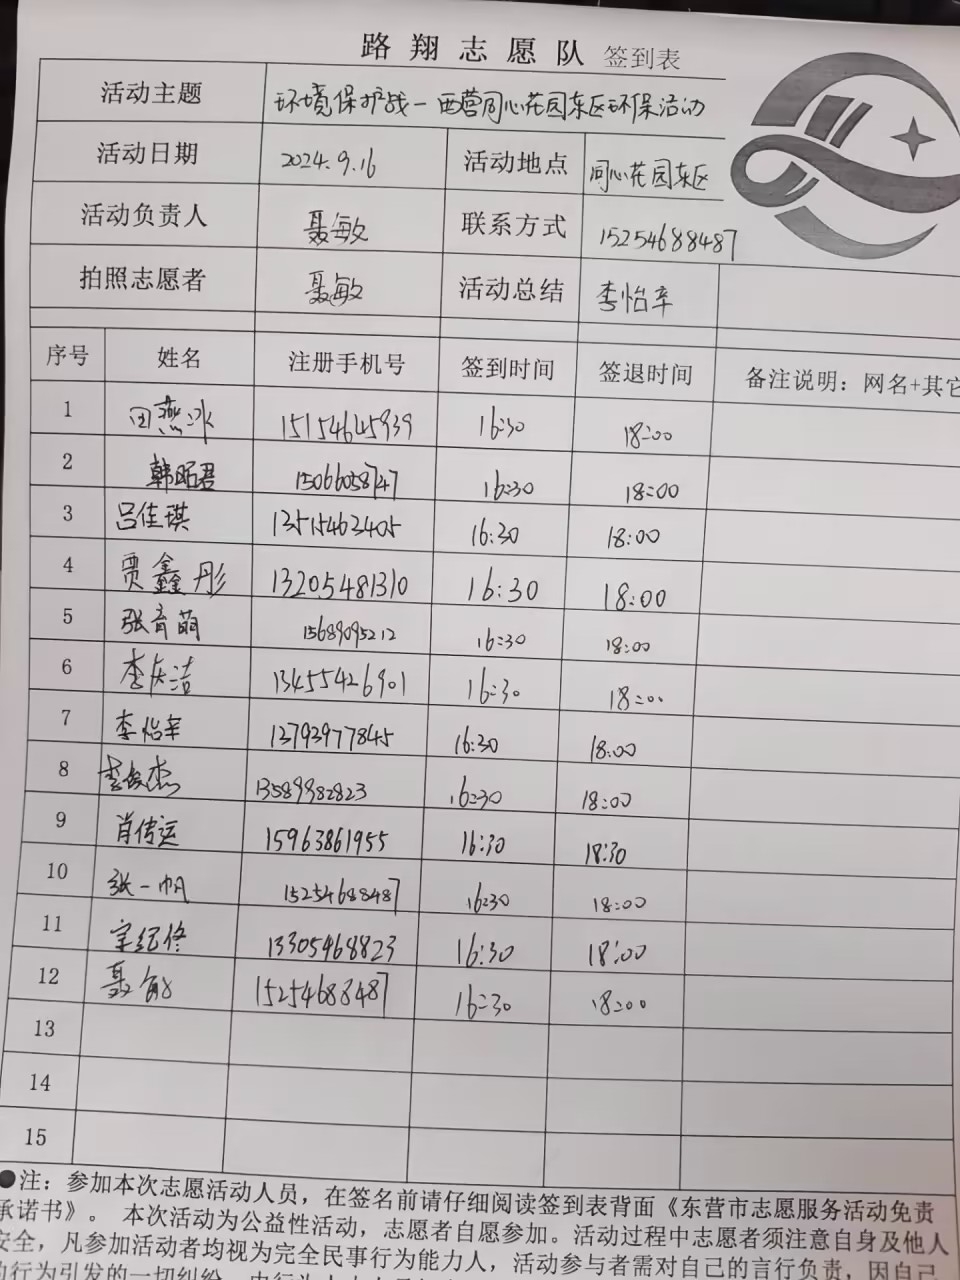 路翔志愿队 签到表
活动主题 环境保护战一西营同心花园东区环保活动
活动日期 2024.9.16 活动地点 同心花园东区
活动负责人 聂敏 联系方式 15254688487
拍照志愿者 聂敏 活动总结 李怡辛
序号 姓名 注册手机号 签到时间 签退时间 备注说明：网名+其它
1 田燕冰 15154645939 16:30 18:00
2 韩昭君 15066058747 16:30 18:00
3 吕佳琪 13515463405 16:30 18:00
4 贾鑫彤 13205481310 16:30 18:00
5 张育萌 15689095212 16:30 18:00
6 李庆洁 13455426901 16:30 18:00
7 李怡辛 13793977845 16:30 18:00
8 李俊杰 13589982823 16:30 18:00
9 肖传运 15963861955 16:30 18:30
10 张一帆 15254688487 16:30 18:00
11 宋纪修 13305468823 16:30 18:00
12 聂敏 15254688487 16:30 18:00
13
14
15
●注：参加本次志愿活动人员，在签名前请仔细阅读签到表背面《东营市志愿服务活动免责
承诺书》。 本次活动为公益性活动，志愿者自愿参加。活动过程中志愿者须注意自身及他人
安全，凡参加活动者均视为完全民事行为能力人，活动参与者需对自己的言行负责，因自己
的行为引发的一切纠纷